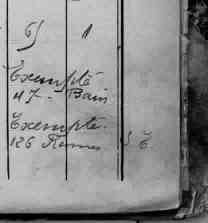 6) 1
Exempté
47 - Bain
Exempte.
126 Rennes S. E.